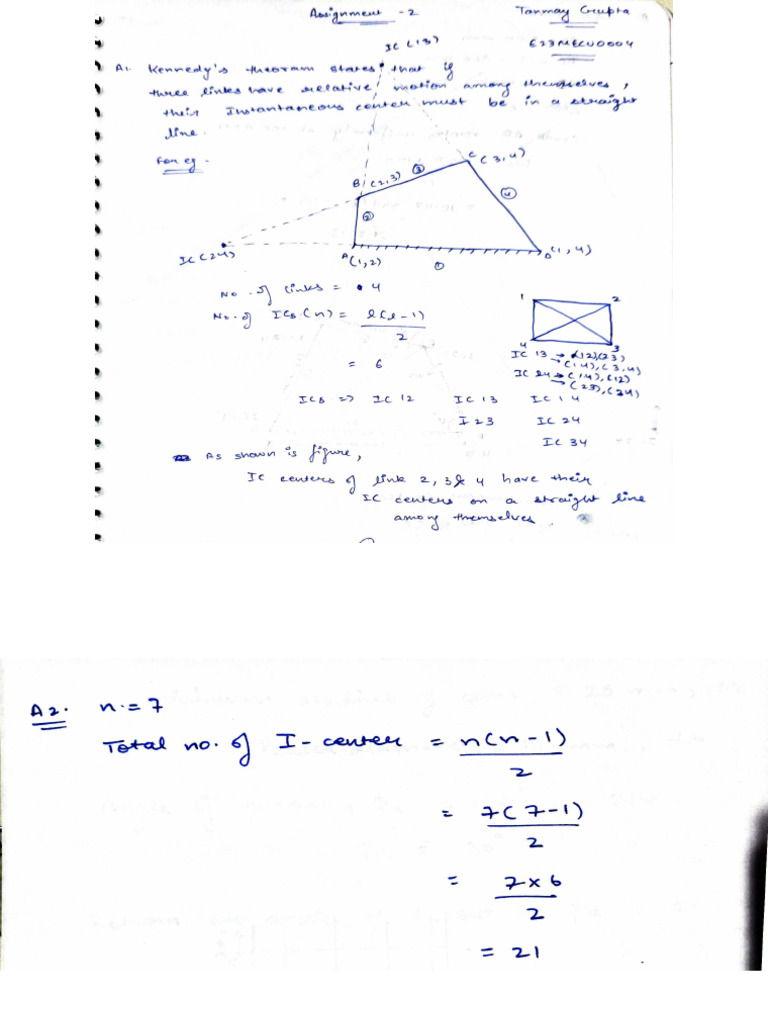 Assignment - 2
Tanmay Gupta
E23MECU0004
IC (13)
A1. Kennedy's theoram states that if
three links have relative motion among themselves,
their Instantaneous center must be in a straight
line.
For eg -
C (3,4)
B (2,3)
③
②
④
IC (24)
A
(1,2)
①
D (1,4)
No. of links = 4
No. of ICs (n) = l(l-1)
2
= 6
1 2
4 3
IC 13 → (12),(23)
→ (14),(3,4)
IC 24 → (1,4),(12)
→ (23),(34)
ICs => IC 12 IC 13 IC 14
I 23 IC 24
IC 34
As shown is figure,
IC centers of link 2, 3 & 4 have their
IC centers on a straight line
among themselves.
A2. n = 7
Total no. of I-center = n(n-1)
2
= 7(7-1)
2
= 7×6
2
= 21